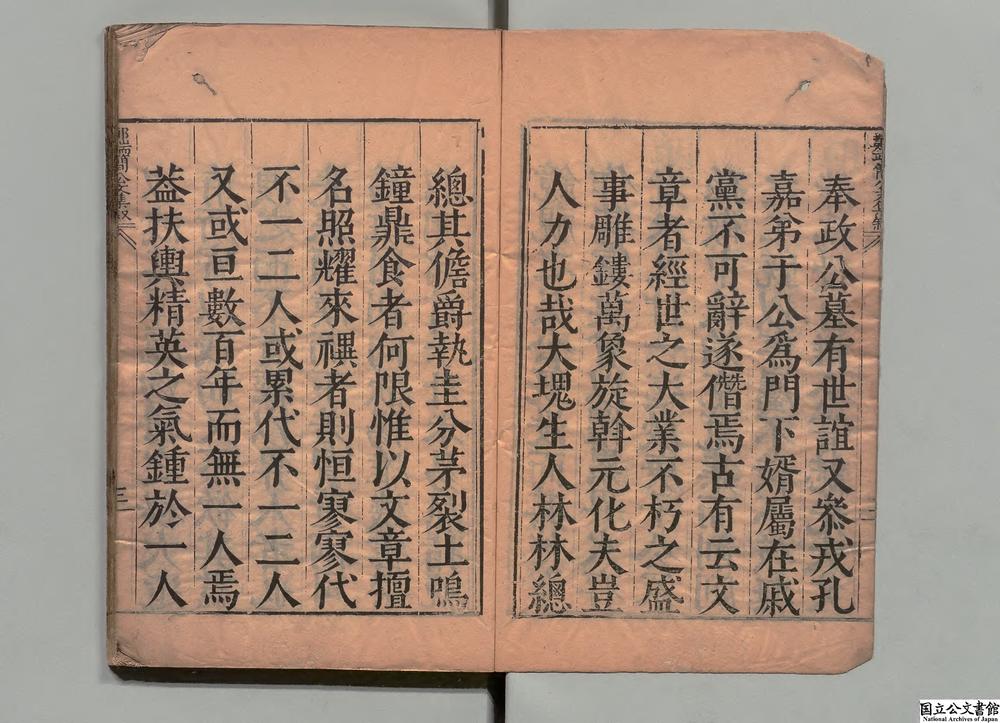 奉政公墓有世誼又叅戎孔
嘉弟于公爲門下婿屬在戚
黨不可辭遂僭焉古有云文
章者經世之大業不朽之盛
事雕鏤萬象旋斡元化夫豈
人力也哉大塊生人林林總
總其儋爵執圭分茅裂土鳴
鐘鼎食者何限惟以文章擅
名照耀來禩者則恒寥寥代
不一二人或累代不一二人
又或亘數百年而無一人焉
葢扶輿精英之氣鍾於一人
三
国立公文書館
National Archives of Japan